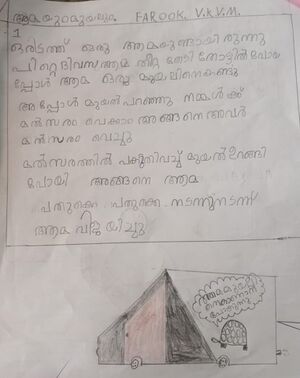 ആമയും മുയലും. FAROOK. V.K.V.M.
1
ഒരിടത്ത് ഒരു ആമയുണ്ടായിരുന്നു
പിറ്റെ ദിവസം ആമ തീറ്റ തേടി തോട്ടിൽ പോയ
പ്പോൾ ആമ ഒരു മുയലിനെ കണ്ടു
അപ്പോൾ മുയൽ പറഞ്ഞു നമ്മൾക്ക്
മൽസരം വെക്കാം അങ്ങനെ അവർ
മൽസരം വെച്ചു
മൽസരത്തിൽ പകുതിവച്ച് മുയൽ ഉറങ്ങി
പോയി അങ്ങനെ ആമ
പതുക്കെ പതുക്കെ നടന്നു നടന്ന്
ആമ വിജയിച്ചു
പോകുന്നു